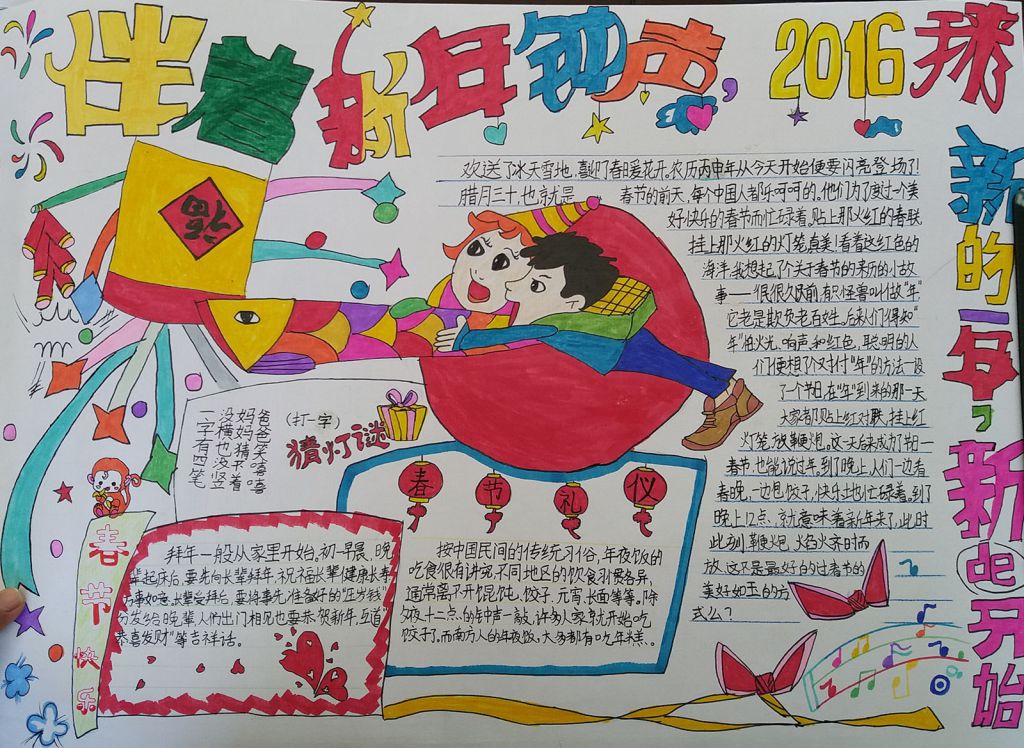 伴着新年钟声，2016 猴
新的一年，新de开始
福
欢送了冰天雪地，喜迎了春日暖花开。农历丙申年从今天开始便要闪亮登场了！
腊月三十，也就是春节的前天，每个中国人都乐呵呵的。他们为了度过一个美
好快乐的春节而忙碌着。贴上那火红的春联
挂上那火红的灯笼，真美！看着这红色的
海洋，我想起了个关于春节的来历的小故
事——很很久以前，有只怪兽叫做"年"
它老是欺负老百姓。后来人们得知"
年"怕火光、响声和红色，聪明的人
们便想了个对付"年"的方法—设
了一个节日，在"年"到来的那一天
大家都贴上红对联，挂上红
灯笼，放鞭炮。这一天后来成为了节日—
春节，也能说过年。到了晚上，人们一边看
春晚，一边包饺子，快乐地忙碌着。到了
晚上12点，就意味着新年来了，此时
此刻，鞭炮、焰火齐时而
放，这不是最好的过春节的
美好如玉的方
式么？
猜灯谜
(打一字)
爸爸笑嘻嘻
妈妈猜不着
没横也没竖
一字有四笔
春节礼仪
春节快乐
拜年一般从家里开始。初一早晨，晚
辈起床后，要先向长辈拜年，祝福长辈健康长寿
万事如意。长辈受拜后，要将事先准备好的"压岁钱"
分发给晚辈。人们出门相见也要恭贺新年，互道
恭喜发财"等吉祥话。
按中国民间的传统习俗，年夜饭的
吃食很有讲究，不同地区的饮食习惯各异，
通常离不开馄饨、饺子、元宵、长面等等。除
夜十二点的钟声一敲，许多人家都开始吃
饺子了，而南方人的年夜饭，大多都有吃年糕…